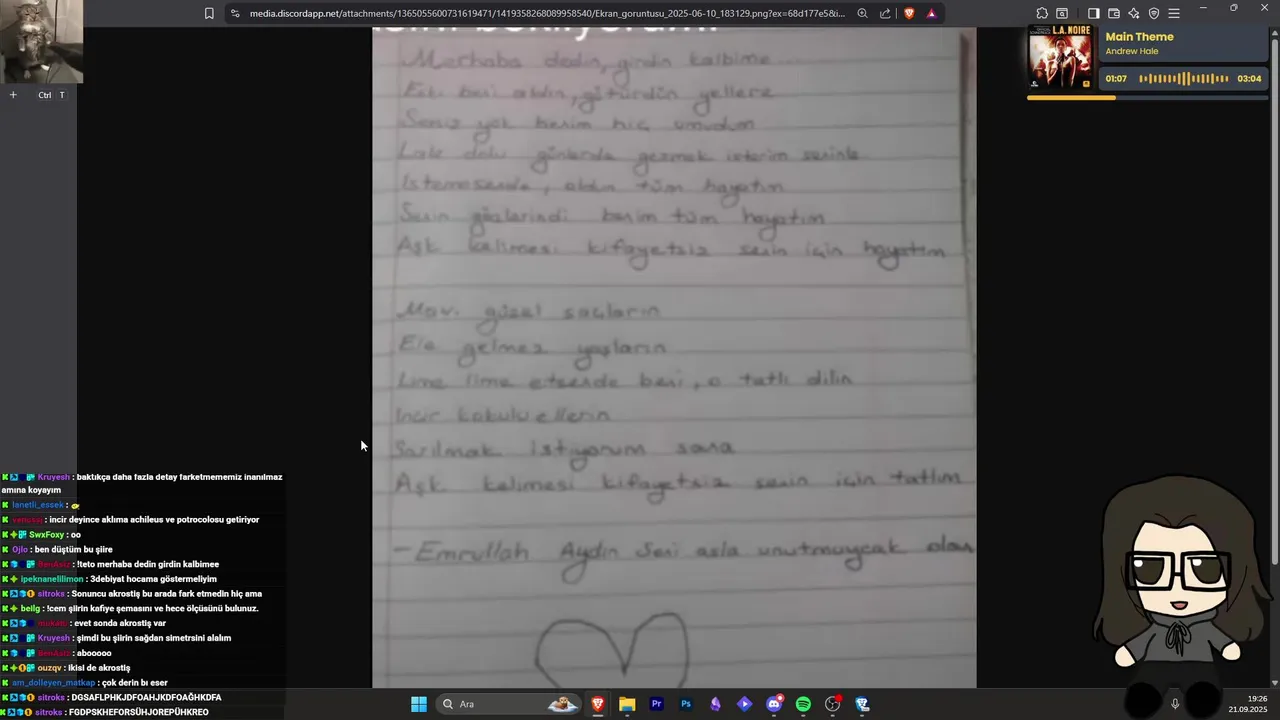 media.discordapp.net/attachments/1365055600731619471/1419358268089958540/Ekran_goruntusu_2025-06-10_183129.png?ex=68d177e5&i...
Main Theme
Andrew Hale
01:07
03:04
L.A. NOIRE
+ Ctrl T
Merhaba dedin, girdin kalbime...
beni aldın, götürdün yellere
Sensiz yok benim hiç umudum
Lale dolu günlerde gezmek isterim seninle
İstemesende, aldın tüm hayatım
Senin gözlerindi benim tüm hayatım
Aşk kelimesi kifayetsiz senin için hayatım
Mavi güzel saçların
Ele gelmez yaşların
Lime lime etsende beni, o tatlı dilin
İncir kokulu ellerin
Sarılmak istiyorum sana
Aşk kelimesi kifayetsiz senin için tatlım
- Emrullah Aydın Seni asla unutmuycak olan
Kruyesh : baktıkça daha fazla detay farketmememiz inanılmaz
amına koyayım
lanetli_essek :
: incir deyince aklıma achileus ve potrocolosu getiriyor
SwxFoxy : oo
Ojlo : ben düştüm bu şiire
BenAsiz : !teto merhaba dedin girdin kalbimee
ipeknanelilimon : 3debiyat hocama göstermeliyim
sitroks : Sonuncu akrostiş bu arada fark etmedin hiç ama
beilg : !cem şiirin kafiye şemasını ve hece ölçüsünü bulunuz.
: evet sonda akrostiş var
Kruyesh : şimdi bu şiirin sağdan simetrsini alalım
BenAsiz : abooooo
ouzqv : Ikisi de akrostiş
am_dolleyen_matkap : çok derin bı eser
sitroks : DGSAFLPHKJDFOAHJKDFOAĞHKDFA
sitroks : FGDPSKHEFORSÜHJOREPÜHKREO
Ara
Pr
Ps
19:26
21.09.2025